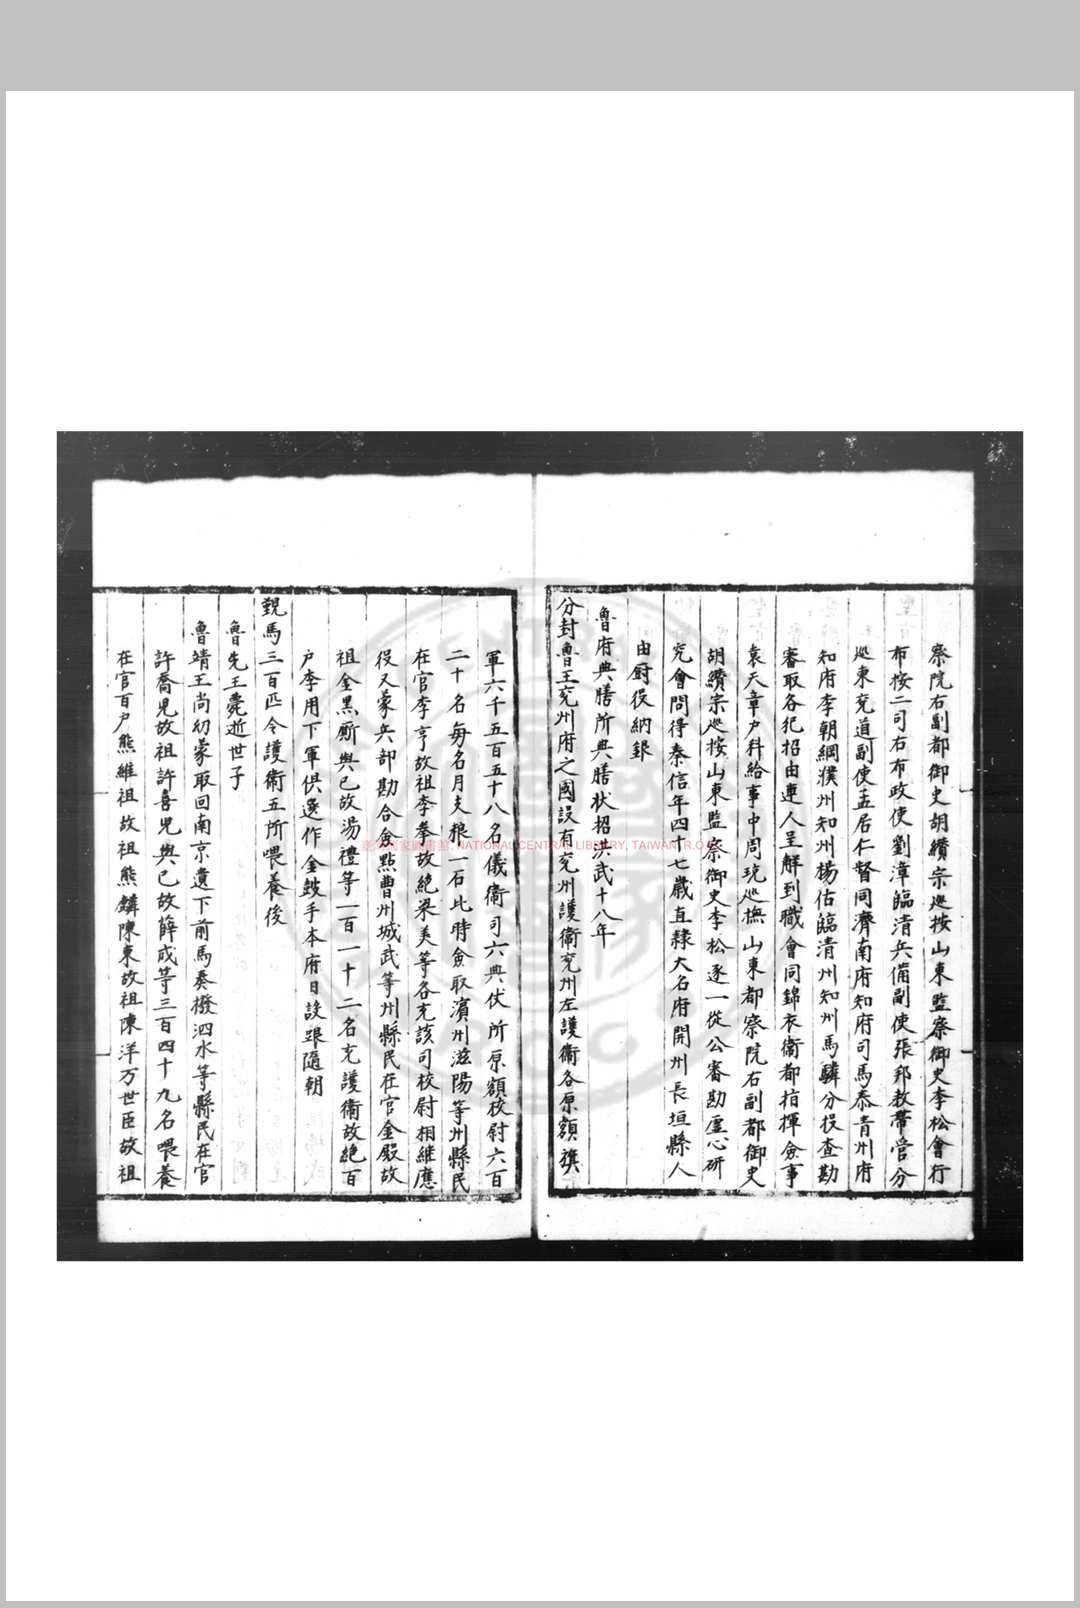 察院右副都御史胡纘宗巡按山東監察御史李松會行
布按二司右布政使劉漳臨清兵備副使張邦教帶管分
巡東兖道副使孟居仁督同濟南府知府司馬泰青州府
知府李朝綱濮州知州楊佑臨清州知州馬驎分投查勘
審取各犯招由連人呈解到職會同錦衣衛都指揮僉事
袁天章户科給事中周珫巡撫山東都察院右副都御史
胡纘宗巡按山東監察御史李松逐一從公審勘虛心研
究會問得秦信年四十七歲直隸大名府開州長垣縣人
由厨役納銀
魯府典膳所典膳状招洪武十八年
分封魯王兖州府之國設有兖州護衛兖州左護衛各原額旗
軍六千五百五十八名儀衛司六典伏所原額校尉六百
二十名每名月支粮一石比時僉取濱州滋陽等州縣民
在官李亨故祖李拳故絶梁美等各充該司校尉相繼應
役又蒙兵部勘合僉點曹州城武等州縣民在官金殷故
祖金黑廝與已故湯禮等一百一十二名充護衛故絶百
户李用下軍俱選作金鼓手本府日設跟隨朝
覲馬三百匹令護衛五所喂養後
魯先王薨逝世子
魯靖王尚幼蒙取回南京遺下前馬奏撥泗水等縣民在官
許喬兒故祖許喜兒與已故薛成等三百四十九名喂養
在官百户熊維祖故祖熊鱗陳東故祖陳洋万世臣故祖
NATIONAL CENTRAL LIBRARY, TAIWAN R.O.C